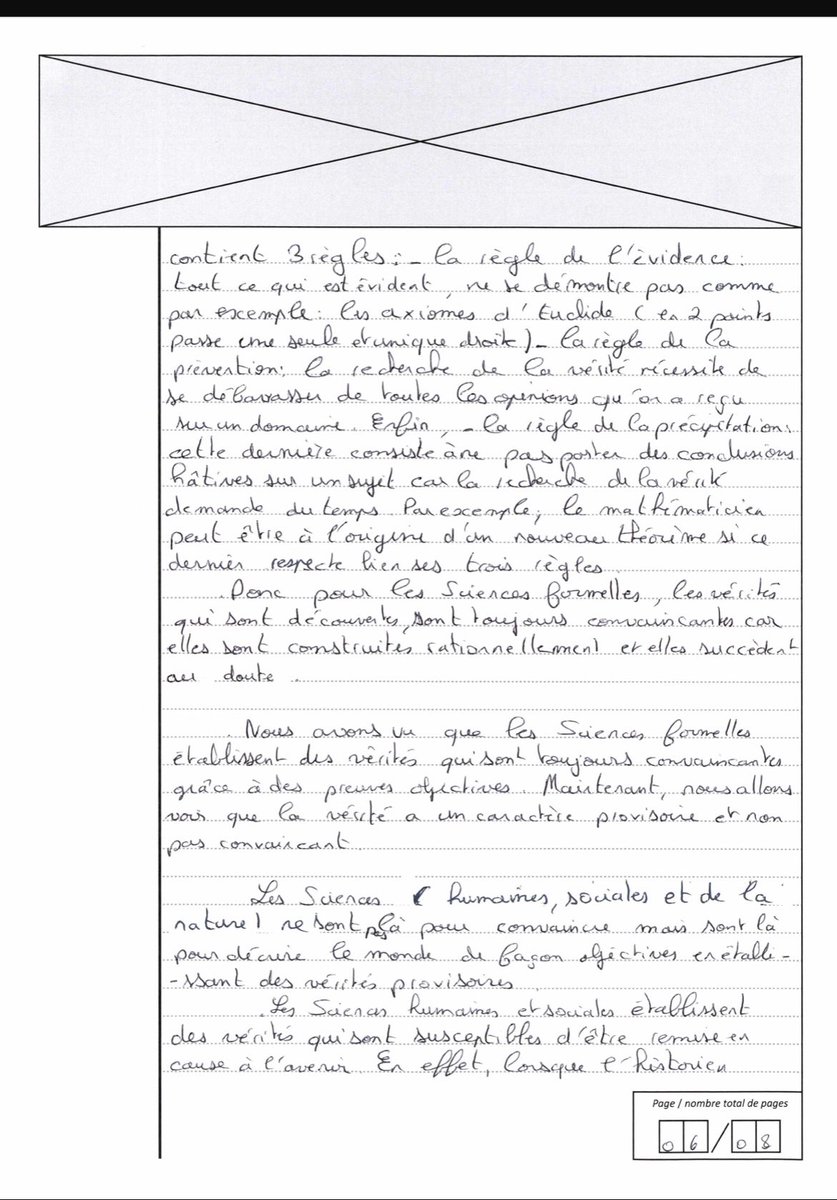 contient 3 règles : - la règle de l'évidence :
tout ce qui est évident, ne se démontre pas comme
par excemple : les axiomes d'Euclide ( en 2 points
passe une seule et unique droite) - la règle de la
prévention : la recherche de la vérité nécessite de
se débarasser de toutes les opinions qu'on a reçu
sur un domaine. Enfin, - la règle de la précipitation :
cette dernière consiste à ne pas porter des conclusions
hâtives sur un sujet car la recherche de la vérité
demande du temps. Par exemple, le mathématicien
peut être à l'origine d'un nouveau théorème si ce
dernier respecte bien ses trois règles.
Donc pour les Sciences formelles, les vérités
qui sont découvertes, sont toujours convaincantes car
elles sont construites rationnellement et elles succèdent
au doute.
Nous avons vu que les Sciences formelles
établissent des vérités qui sont toujours convaincantes
grâce à des preuves objectives. Maintenant, nous allons
voir que la vérité a un caractère provisoire et non
pas convaincant.
Les Sciences ( humaines, sociales et de la
nature) ne sont pas là pour convaincre mais sont là
pour décrire le monde de façon objectives en établi-
-ssant des vérités provisoires.
Les Sciences humaines et sociales établissent
des vérités qui sont susceptibles d'être remise en
cause à l'avenir. En effet, lorsque l'historien
Page / nombre total de pages
06/08